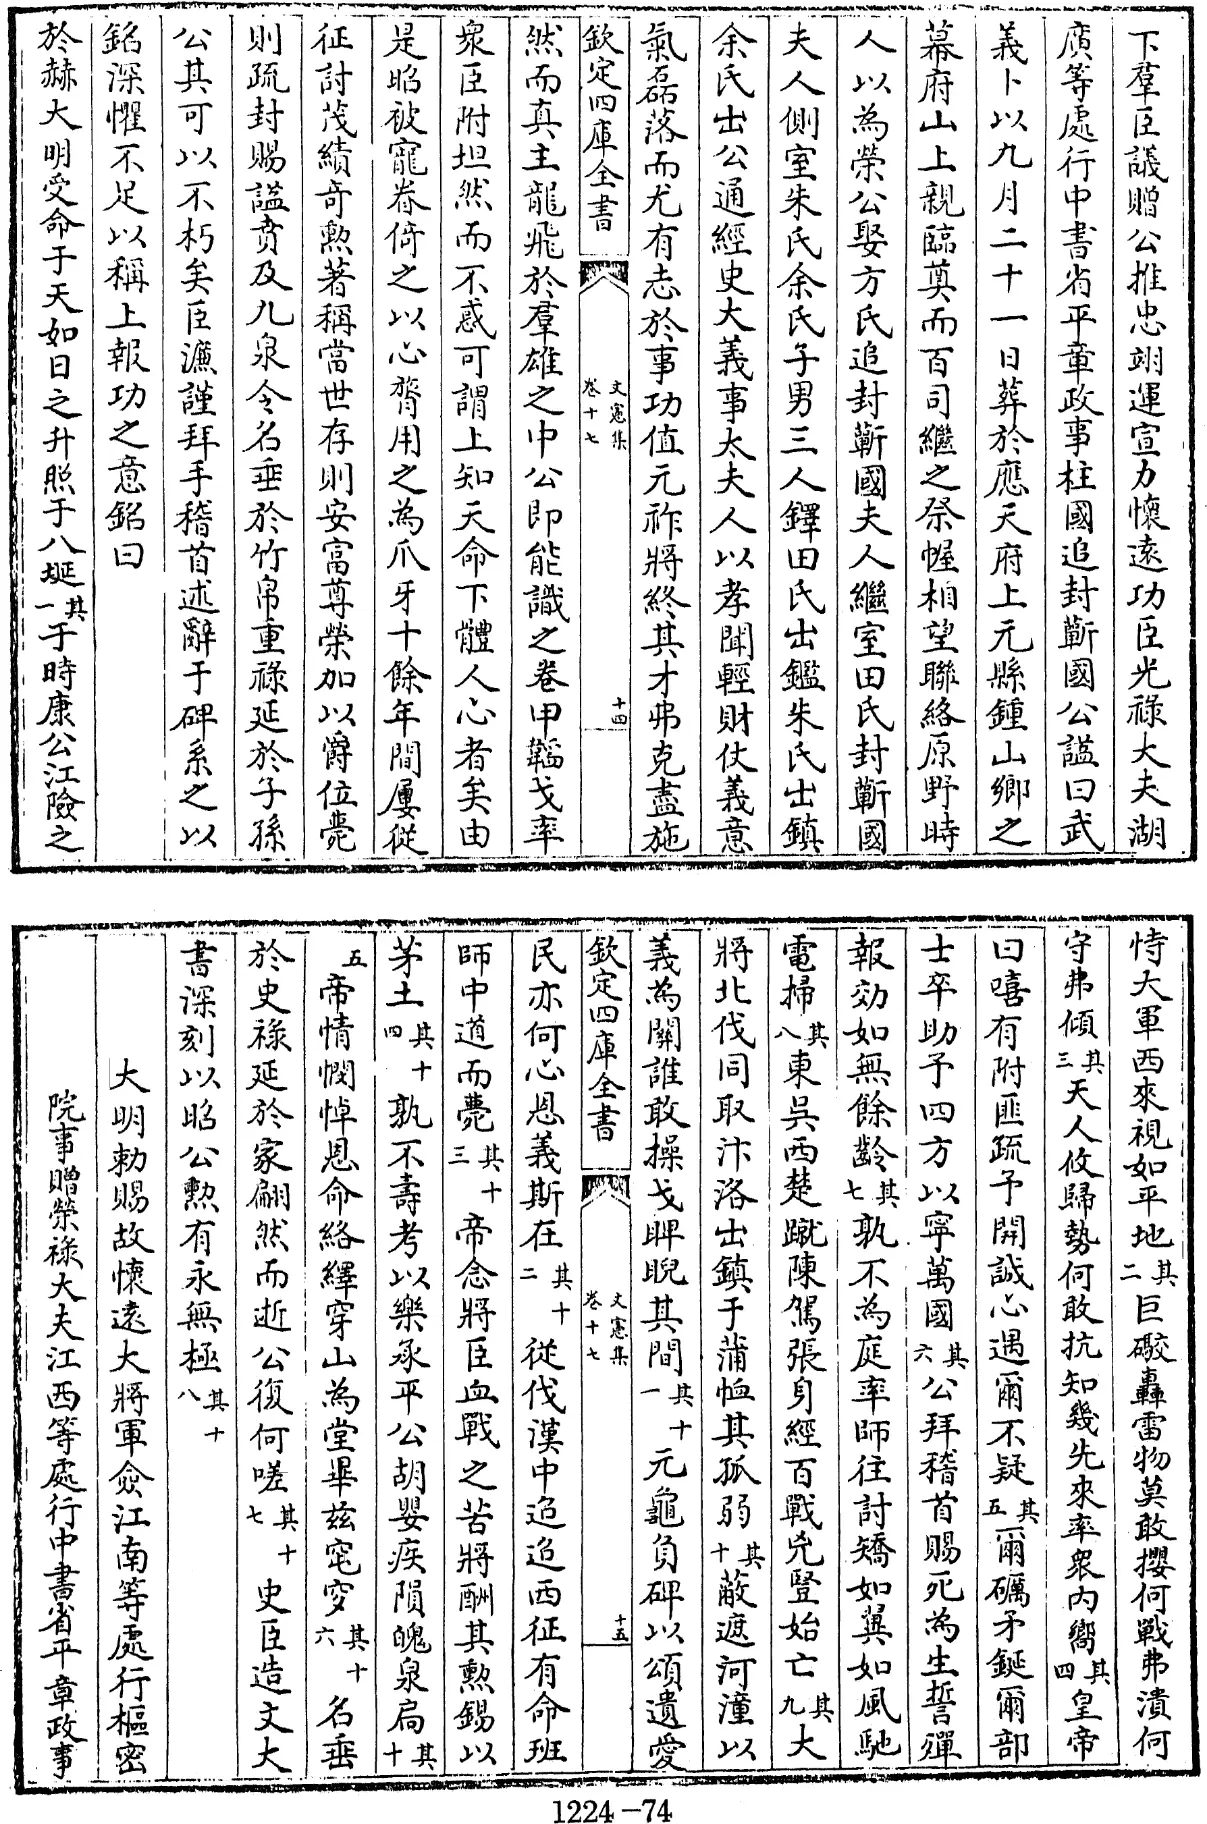 下羣臣議贈公推忠翊運宣力懷遠功臣光祿大夫湖
廣等處行中書省平章政事柱國追封蘄國公諡曰武
義卜以九月二十一日葬於應天府上元縣鍾山鄉之
幕府山上親臨奠而百司繼之祭幄相望聯絡原野時
人以為榮公娶方氏追封蘄國夫人繼室田氏封蘄國
夫人側室朱氏余氏子男三人鐸田氏出鑑朱氏出鎮
余氏出公通經史大義事太夫人以孝聞輕財仗義意
氣磊落而尤有志於事功值元祚將終其才弗克盡施
欽定四庫全書
文憲集
卷十七
十四
然而真主龍飛於羣雄之中公即能識之卷甲韜戈率
衆臣附坦然而不惑可謂上知天命下體人心者矣由
是昭被寵眷倚之以心膂用之為爪牙十餘年間屢從
征討茂績奇勲著稱當世存則安富尊榮加以爵位薨
則疏封賜諡賁及九泉令名垂於竹帛重祿延於子孫
公其可以不朽矣臣濂謹拜手稽首述辭于碑系之以
銘深懼不足以稱上報功之意銘曰
於赫大明受命于天如日之升照于八埏其一于時康公江險之
恃大軍西來視如平地其二巨礮轟雷物莫敢攖何戰弗潰何
守弗傾其三天人攸歸勢何敢抗知幾先來率衆内嚮其四皇帝
曰嘻有附匪疏予開誠心遇爾不疑其五爾礪矛鋋爾部
士卒助予四方以寧萬國其六公拜稽首賜死為生誓殫
報効如無餘齡其七孰不為庭率師往討矯如翼如風馳
電掃其八東吳西楚蹴陳駕張身經百戰兇豎始亡其九大
將北伐同取汴洛出鎮于蒲恤其孤弱其十蔽遮河潼以
義為關誰敢操戈睥睨其間其十一元龜負碑以頌遺愛
欽定四庫全書
文憲集
卷十七
十五
民亦何心恩義斯在其十二從伐漢中迢迢西征有命班
師中道而薨其十三帝念將臣血戰之苦將酬其勲錫以
茅土其十四孰不壽考以樂承平公胡嬰疾隕魄泉扃其十
五帝情憫悼恩命絡繹穿山為堂畢兹窀穸其十六名垂
於史祿延於家翩然而逝公復何嗟其十七史臣造文大
書深刻以昭公勲有永無極其十八
大明勅賜故懷遠大將軍僉江南等處行樞密
院事贈榮祿大夫江西等處行中書省平章政事
1224-74